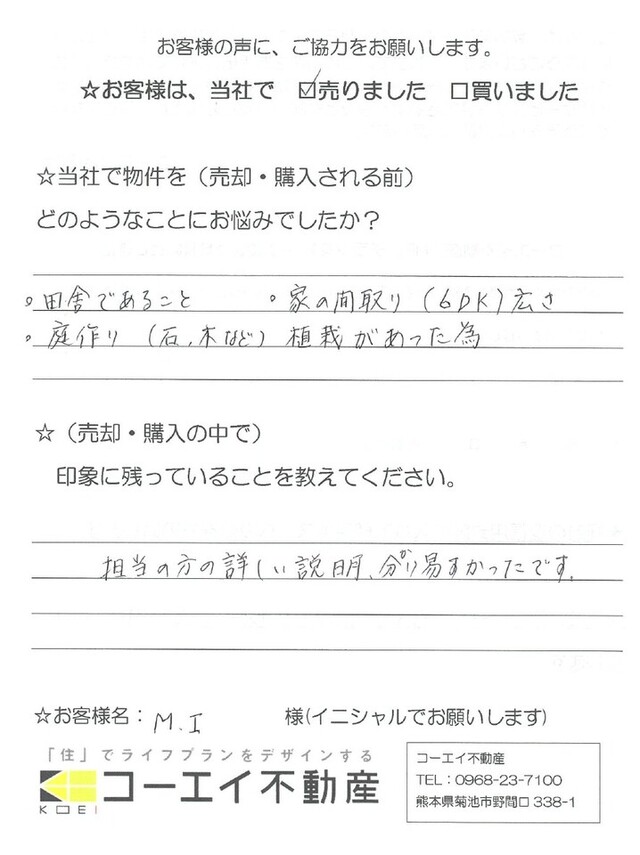 お客様の声に、ご協力をお願いします。
☆お客様は、当社で ☑売りました □買いました
☆当社で物件を（売却・購入される前）
どのようなことにお悩みでしたか？
。田舎であること 。家の間取り（6DK）広さ
。庭作り（石、木など）植栽があった為
☆（売却・購入の中で）
印象に残っていることを教えてください。
担当の方の詳しい説明、分り易すかったです。
☆お客様名： M.I 様(イニシャルでお願いします)
「住」でライフプランをデザインする
KOEI コーエイ不動産
コーエイ不動産
TEL：0968-23-7100
熊本県菊池市野間口 338-1